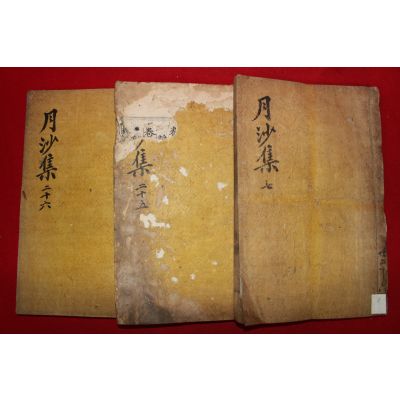 月沙集
二十六
集
二十五
月沙集
七